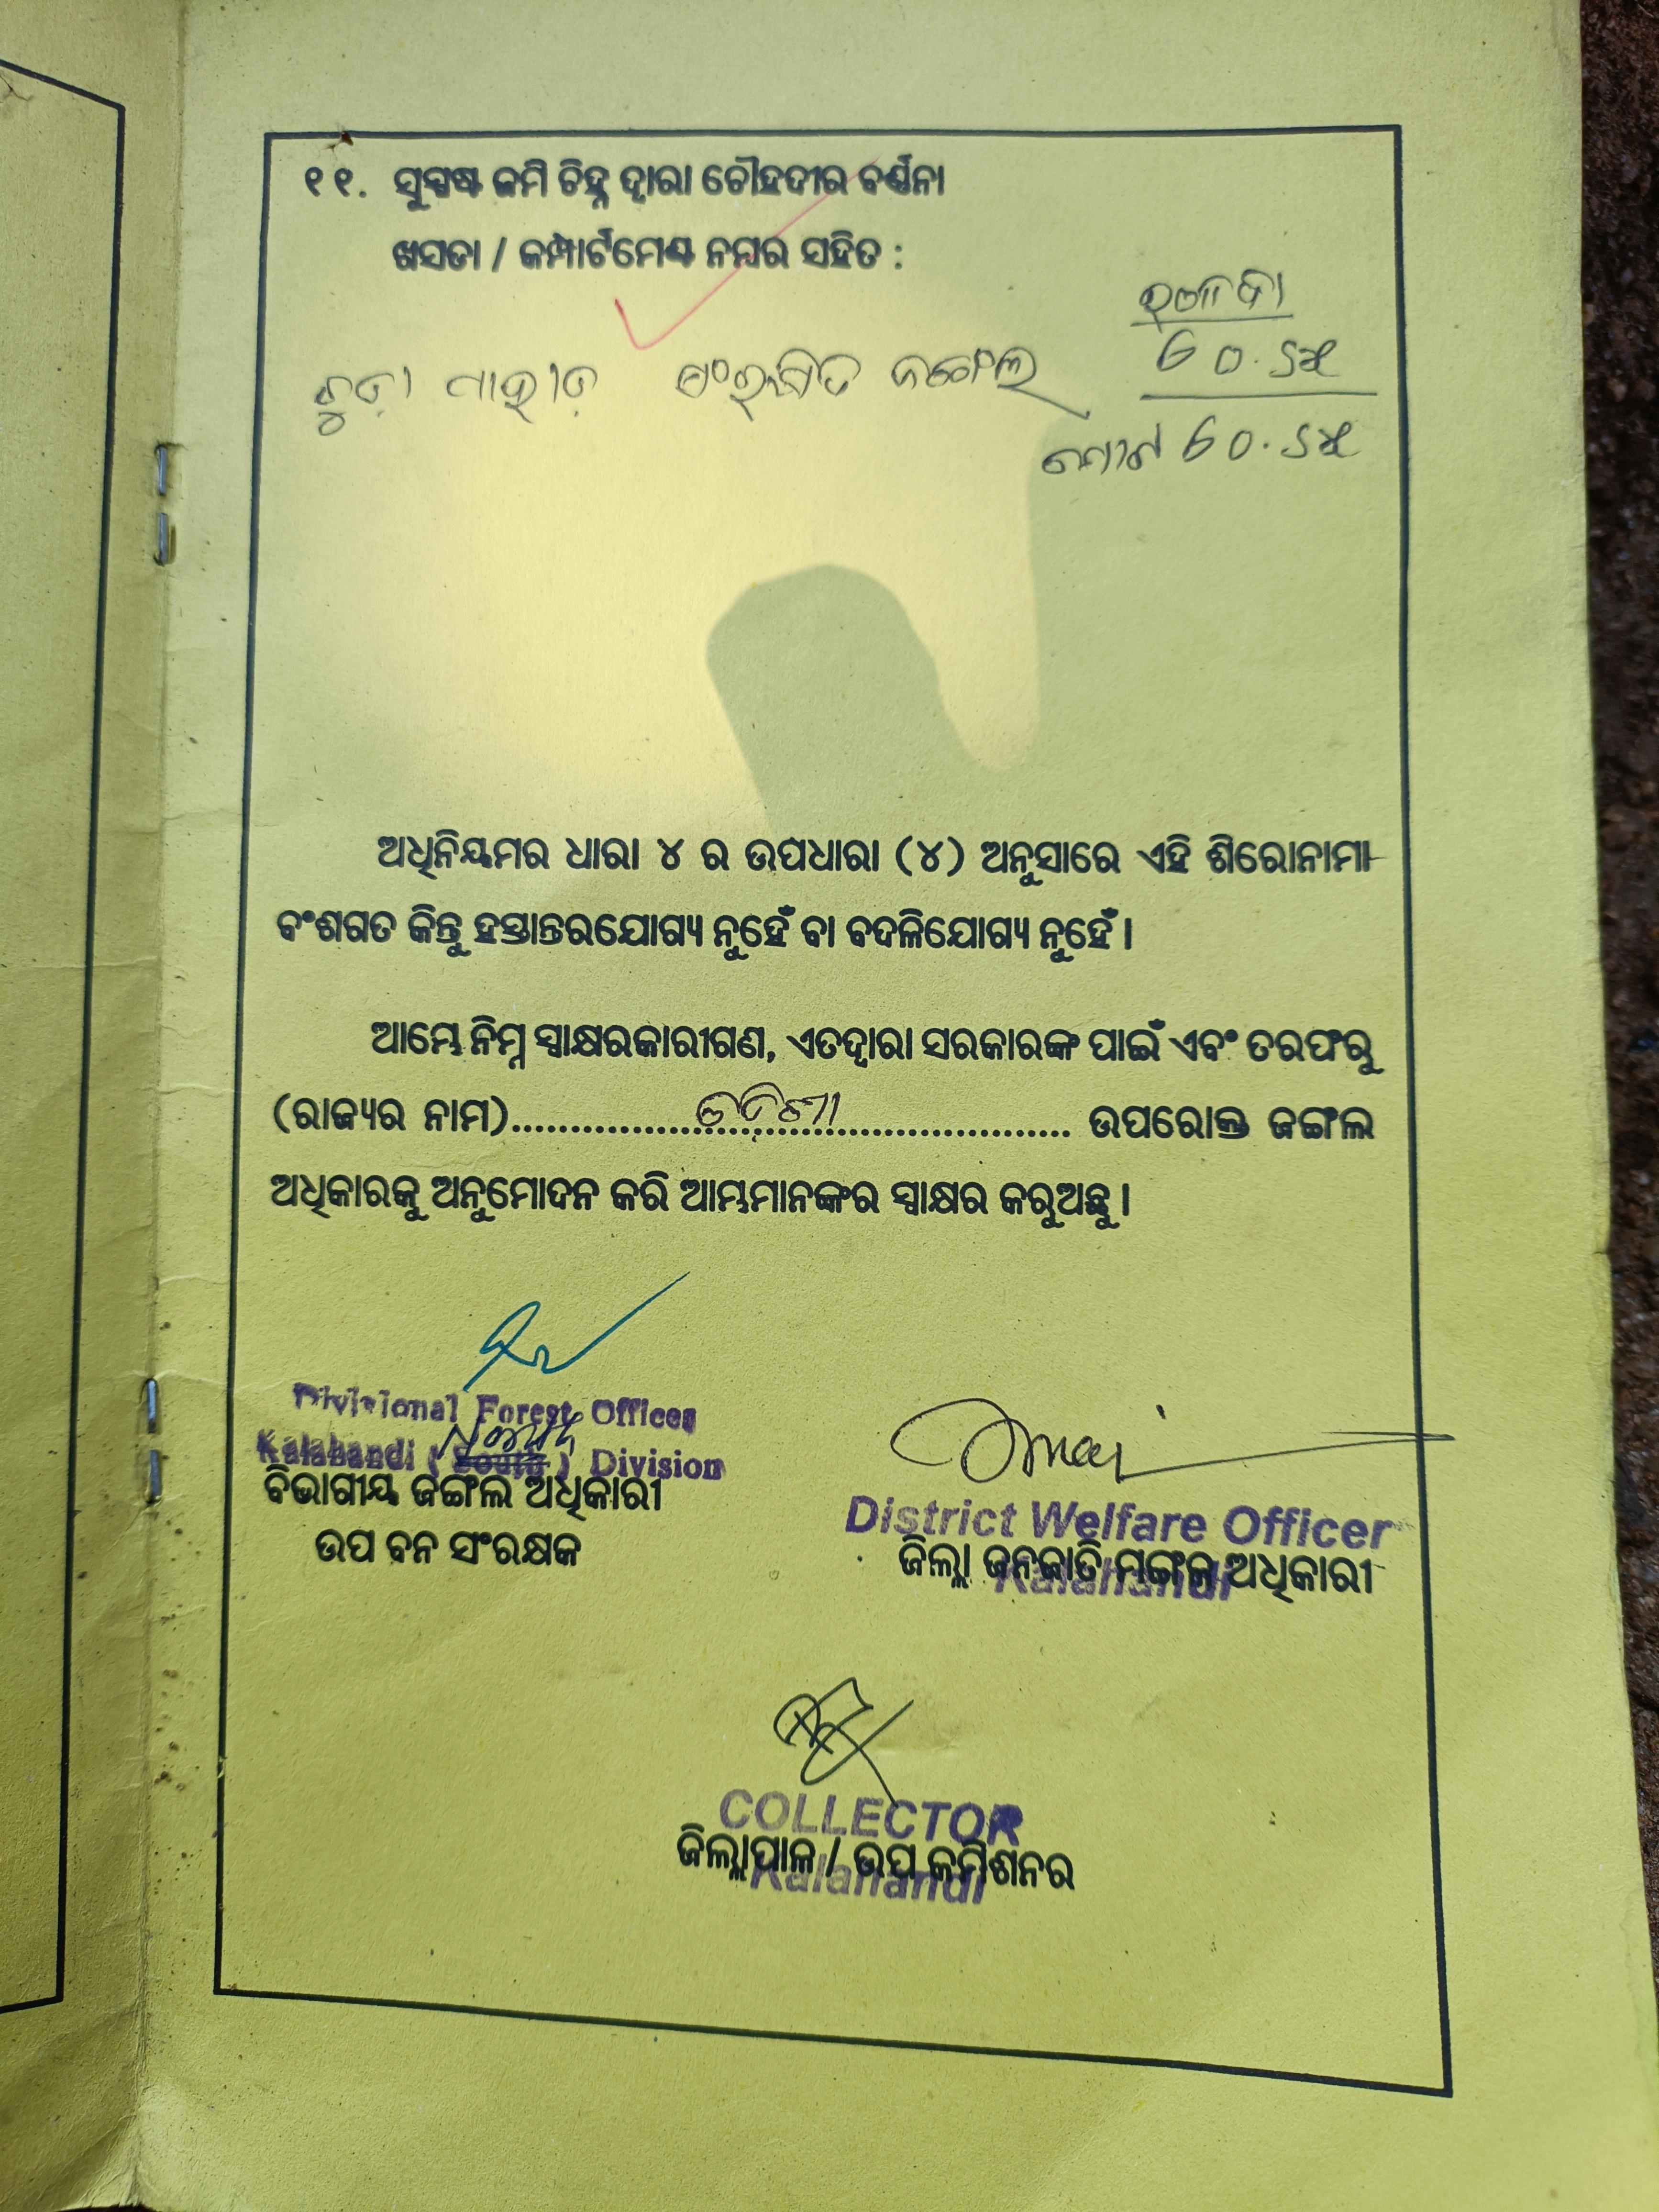 ୧୧. ସୁସ୍ପଷ୍ଟ ଜମି ଚିହ୍ନ ଦ୍ୱାରା ଚୌହଦୀର ବର୍ଣ୍ଣନା
ଖସଡା / କମ୍ପାର୍ଟମେଣ୍ଟ ନମ୍ବର ସହିତ :
ସଂରକ୍ଷିତ ଜଙ୍ଗଲ
ଅଧିନିୟମର ଧାରା ୪ ର ଉପଧାରା (୪) ଅନୁସାରେ ଏହି ଶିରୋନାମା
ବଂଶଗତ କିନ୍ତୁ ହସ୍ତାନ୍ତରଯୋଗ୍ୟ ନୁହେଁ ବା ବଦଳିଯୋଗ୍ୟ ନୁହେଁ ।
ଆମ୍ଭେ ନିମ୍ନ ସ୍ୱାକ୍ଷରକାରୀଗଣ, ଏତଦ୍ୱାରା ସରକାରଙ୍କ ପାଇଁ ଏବଂ ତରଫରୁ
(ରାଜ୍ୟର ନାମ)................ଓଡ଼ିଶା................ ଉପରୋକ୍ତ ଜଙ୍ଗଲ
ଅଧିକାରକୁ ଅନୁମୋଦନ କରି ଆମ୍ଭମାନଙ୍କର ସ୍ୱାକ୍ଷର କରୁଅଛୁ ।
Divisional Forest Officer
Kalahandi (South) Division
North
ବିଭାଗୀୟ ଜଙ୍ଗଲ ଅଧିକାରୀ
ଉପ ବନ ସଂରକ୍ଷକ
District Welfare Officer
Kalahandi
ଜିଲ୍ଲା ଜନଜାତି ମଙ୍ଗଳ ଅଧିକାରୀ
COLLECTOR
Kalahandi
ଜିଲ୍ଲାପାଳ / ଉପ କମିଶନର